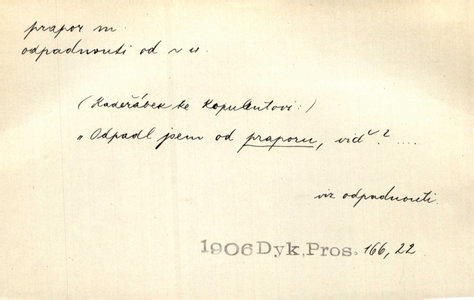 prapor m.
odpadnouti od ~ u.
(Kadeřábek ke Kopulentovi:)
„Odpadl jsem od praporu, viď? ....
viz odpadnouti.
1906 Dyk, Pros. 166, 22